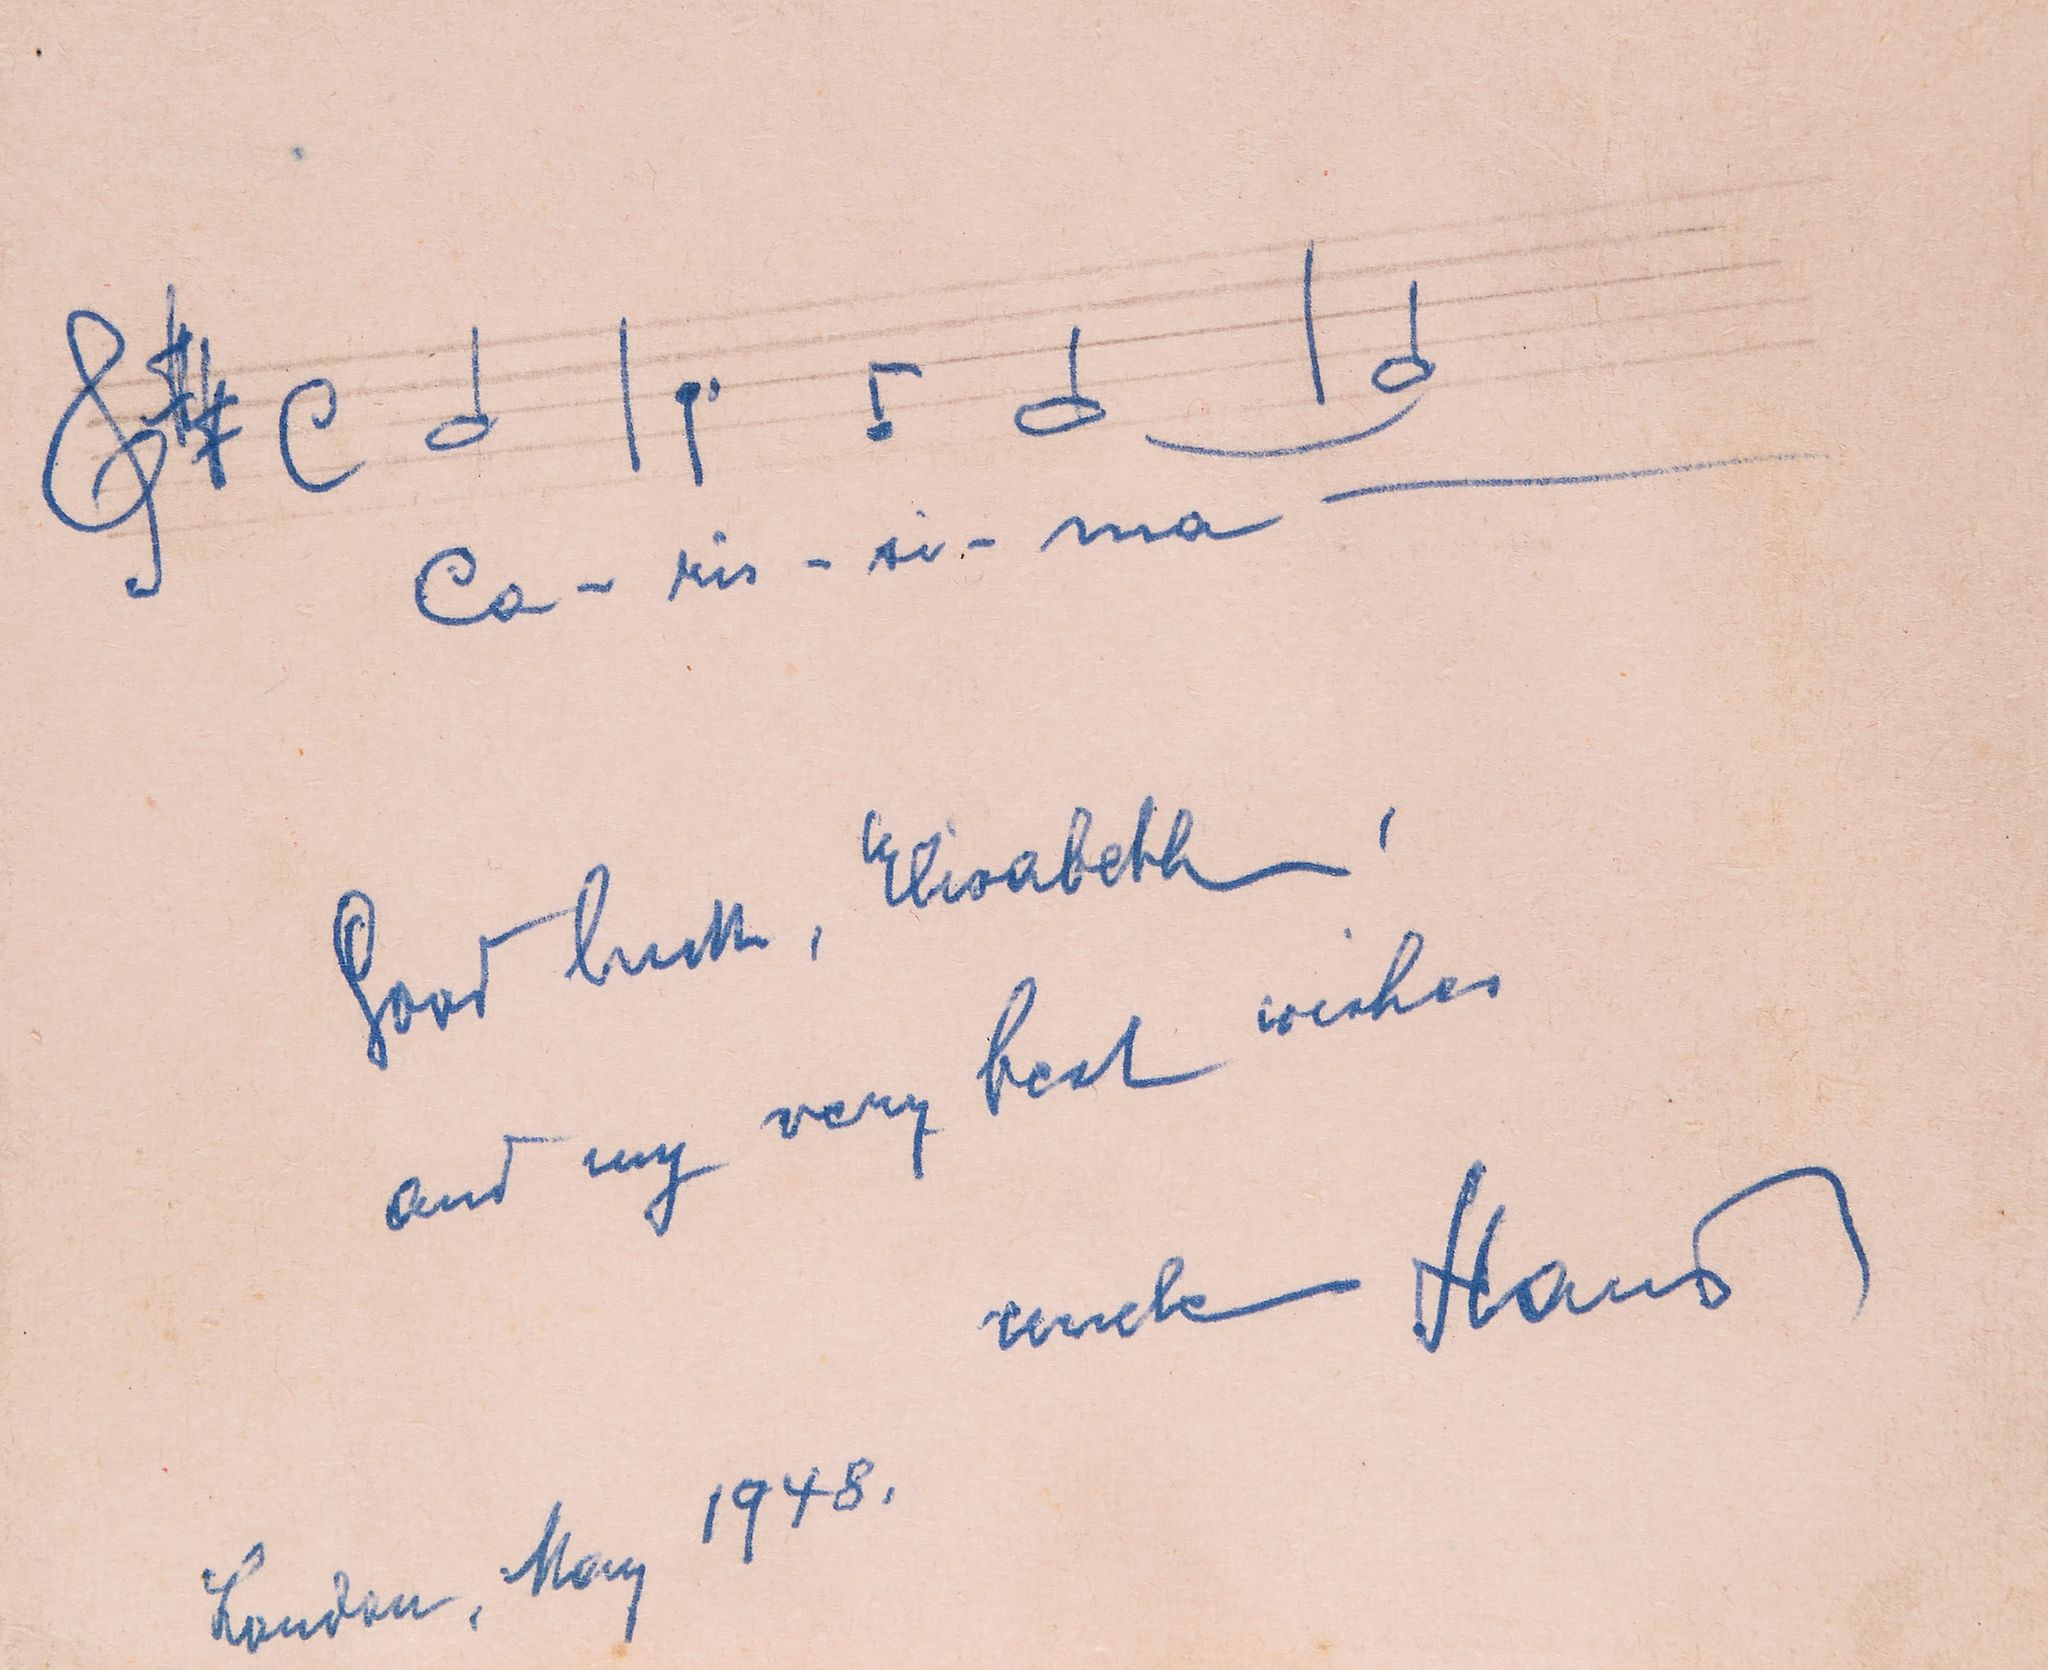 Ca - ris - si - ma
Good luck, Elisabeth!
and my very best wishes
uncle Hans
London, May 1948.